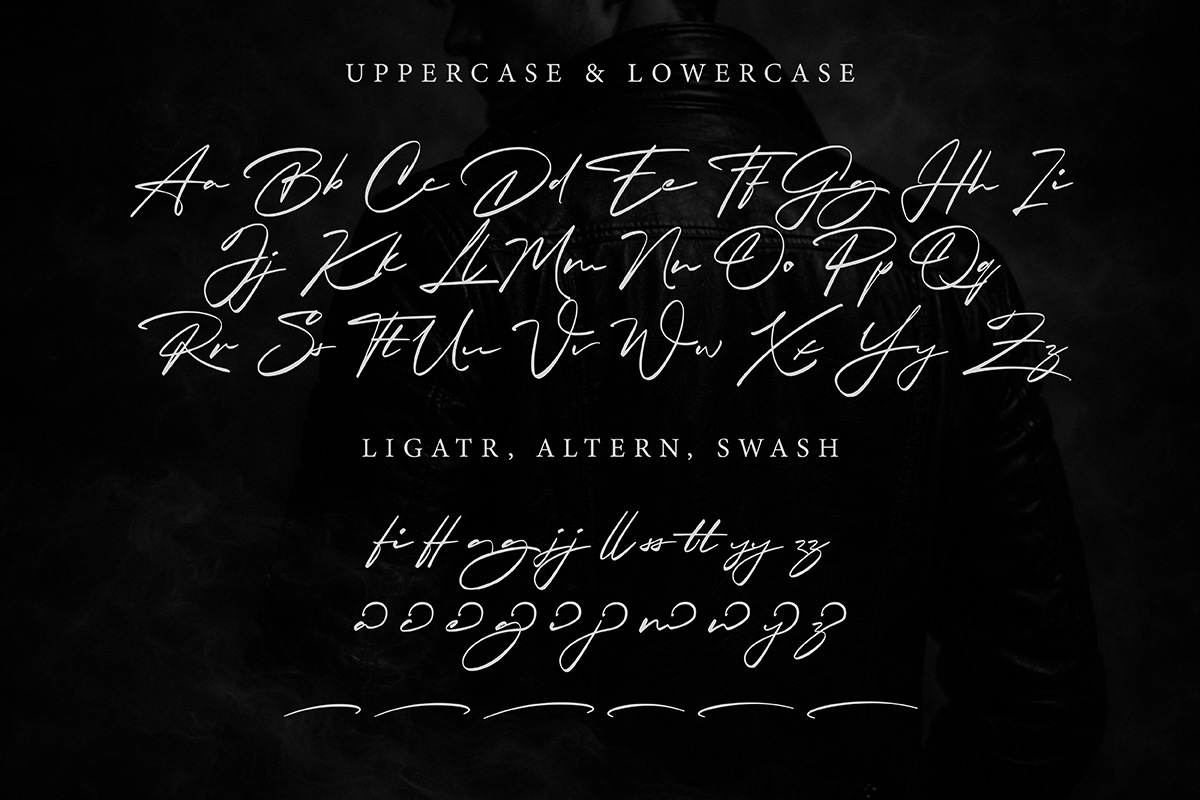 UPPERCASE & LOWERCASE
Aa Bb Cc Dd Ee Ff Gg Hh Ii
Jj Kk Ll Mm Nn Oo Pp Qq
Rr Ss Tt Uu Vv Ww Xx Yy Zz
LIGATR, ALTERN, SWASH
fi ff gg jj ll ss tt yy zz